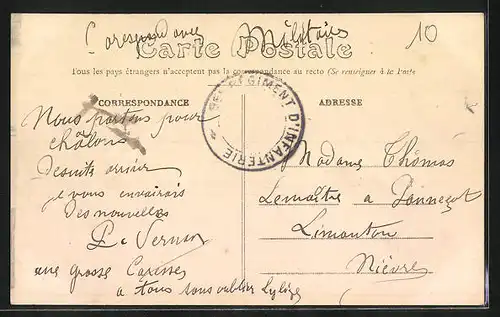 Correspondance Militaire 10
Carte Postale
Tous les pays étrangers n'acceptent pas la correspondance au recto (Se renseigner à la Poste
CORRESPONDANCE
ADRESSE
REGIMENT D'INFANTERIE
Nous partons pour
châlons
Desuits arriver
je vous envairais
Des nouvelles
P. Vernon
une grosse Caresses
a tous sans oublier
Madame Thómas
Lemaître a
Limanton
Nièvre